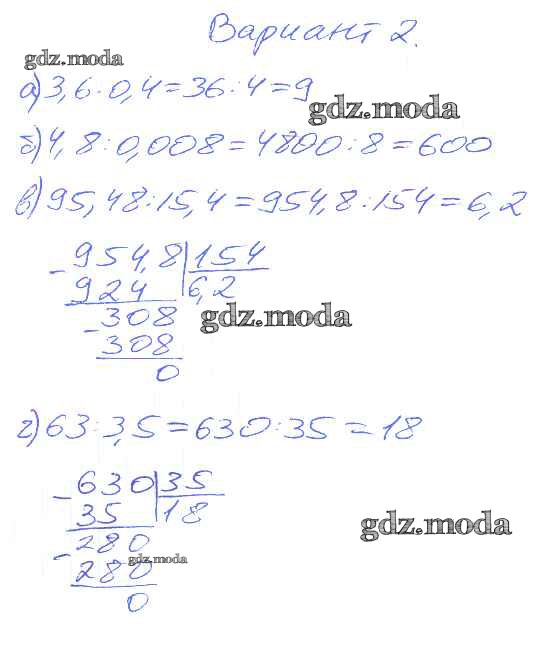 Вариант 2.
gdz.moda
а) 3,6·0,4=36:4=9
gdz.moda
б) 4,8:0,008=4800:8=600
в) 95,48:15,4=954,8:154=6,2
954,8 154
- 924 6,2
gdz.moda
- 308
308
0
г) 63:3,5=630:35=18
- 630 35
35 18
gdz.moda
- 280
gdz.moda
280
0